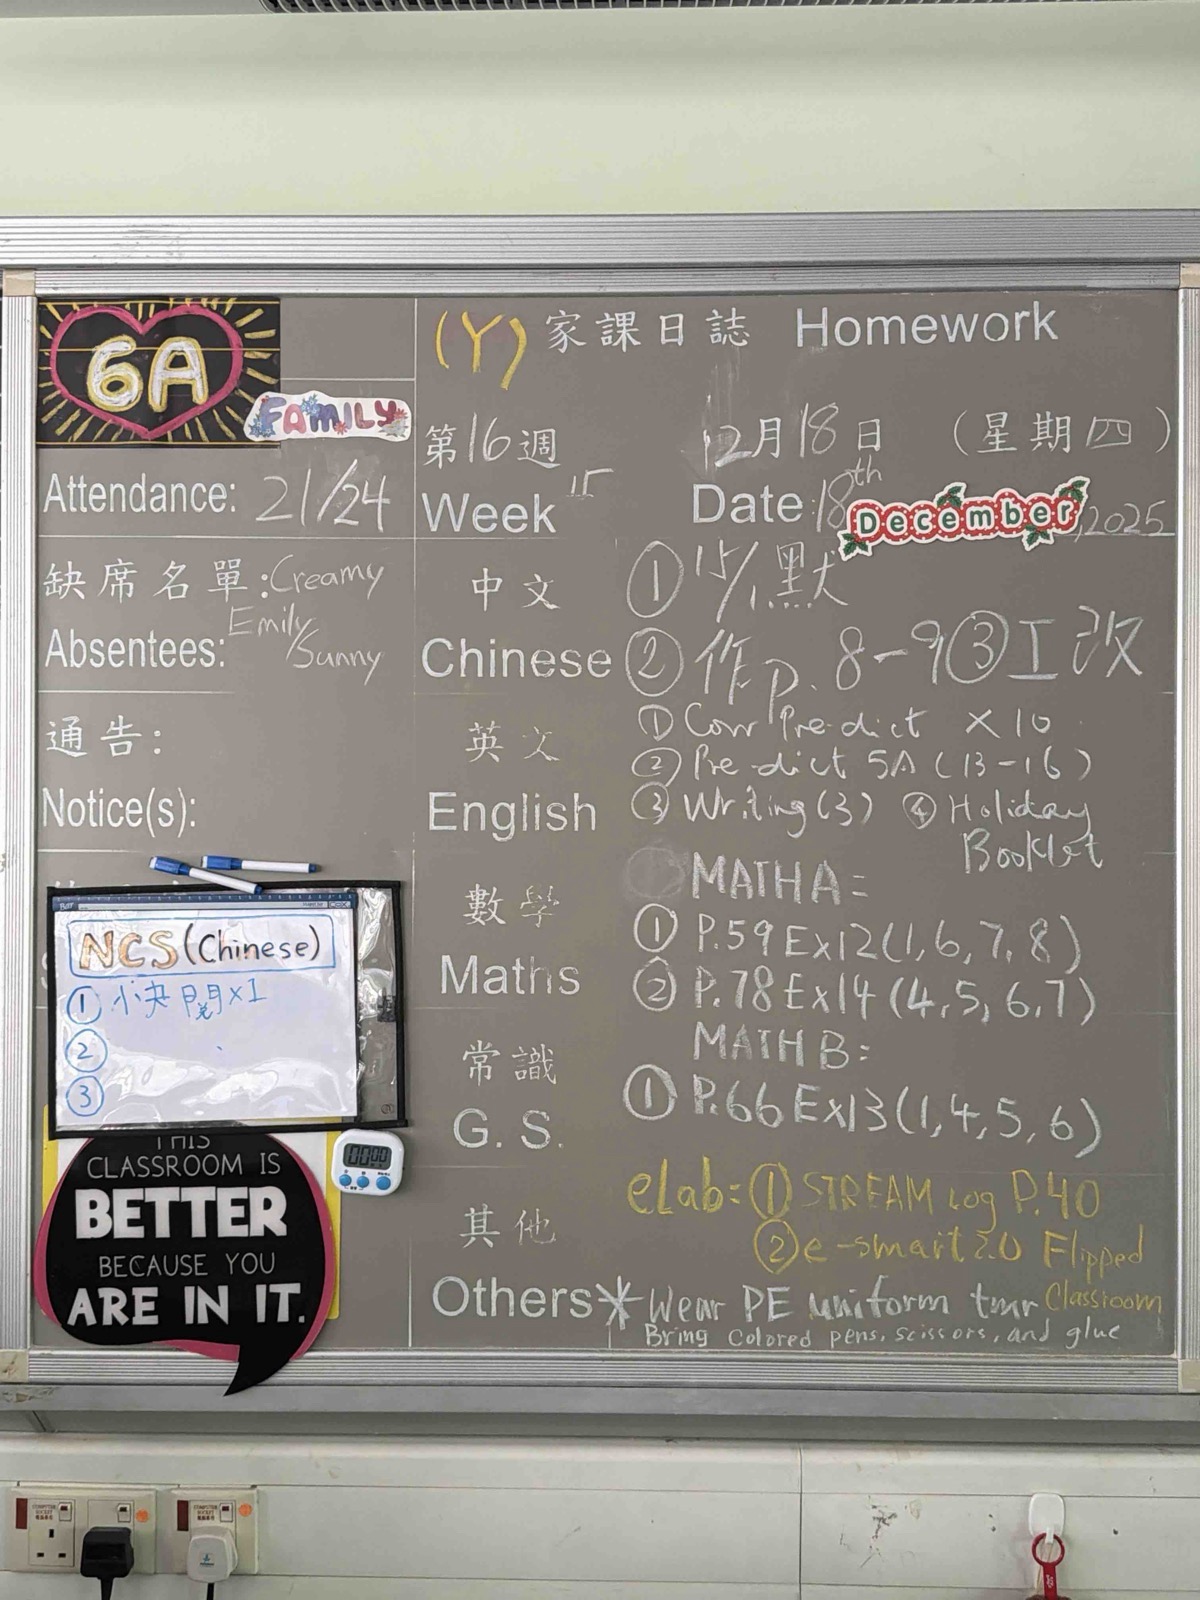 6A
FAMILY
Attendance: 21/24
缺席名單: Creamy
Emily
Absentees: Sunny
通告:
Notice(s):
NCS (Chinese)
① 小夬閱x1
②
③
00:00
THIS
CLASSROOM IS
BETTER
BECAUSE YOU
ARE IN IT.
(Y) 家課日誌 Homework
第16週 12月18日 (星期四)
Week 15 Date: 18th December, 2025
中文 ① 15/1默
Chinese ② 作p. 8-9 ③ 工改
英文 ① Corr Pre-dict x10
② Pre-dict 5A (13-16)
English ③ Writing (3) ④ Holiday
Booklet
MATH A:
數學 ① P.59 Ex12 (1, 6, 7, 8)
Maths ② P.78 Ex14 (4, 5, 6, 7)
MATH B:
常識
G. S. ① P.66 Ex13 (1, 4, 5, 6)
eLab: ① STREAM Log P.40
其他 ② e-smart 2.0 Flipped
Classroom
Others * Wear PE uniform tmr
Bring Colored pens, scissors, and glue